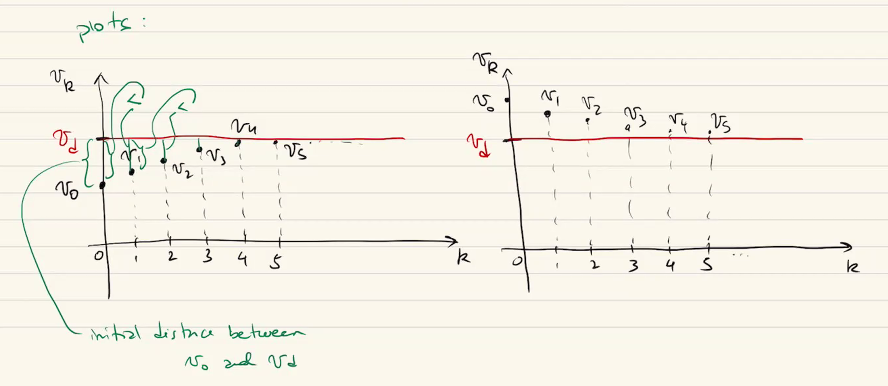 plots:
v_k
v_d
v_0
v_1
v_2
v_3
v_4
v_5
0 1 2 3 4 5
k
<
<
initial distance between
v_0 and v_d
v_k
v_0
v_1
v_2
v_3
v_4
v_5
v_d
0 1 2 3 4 5 ...
k